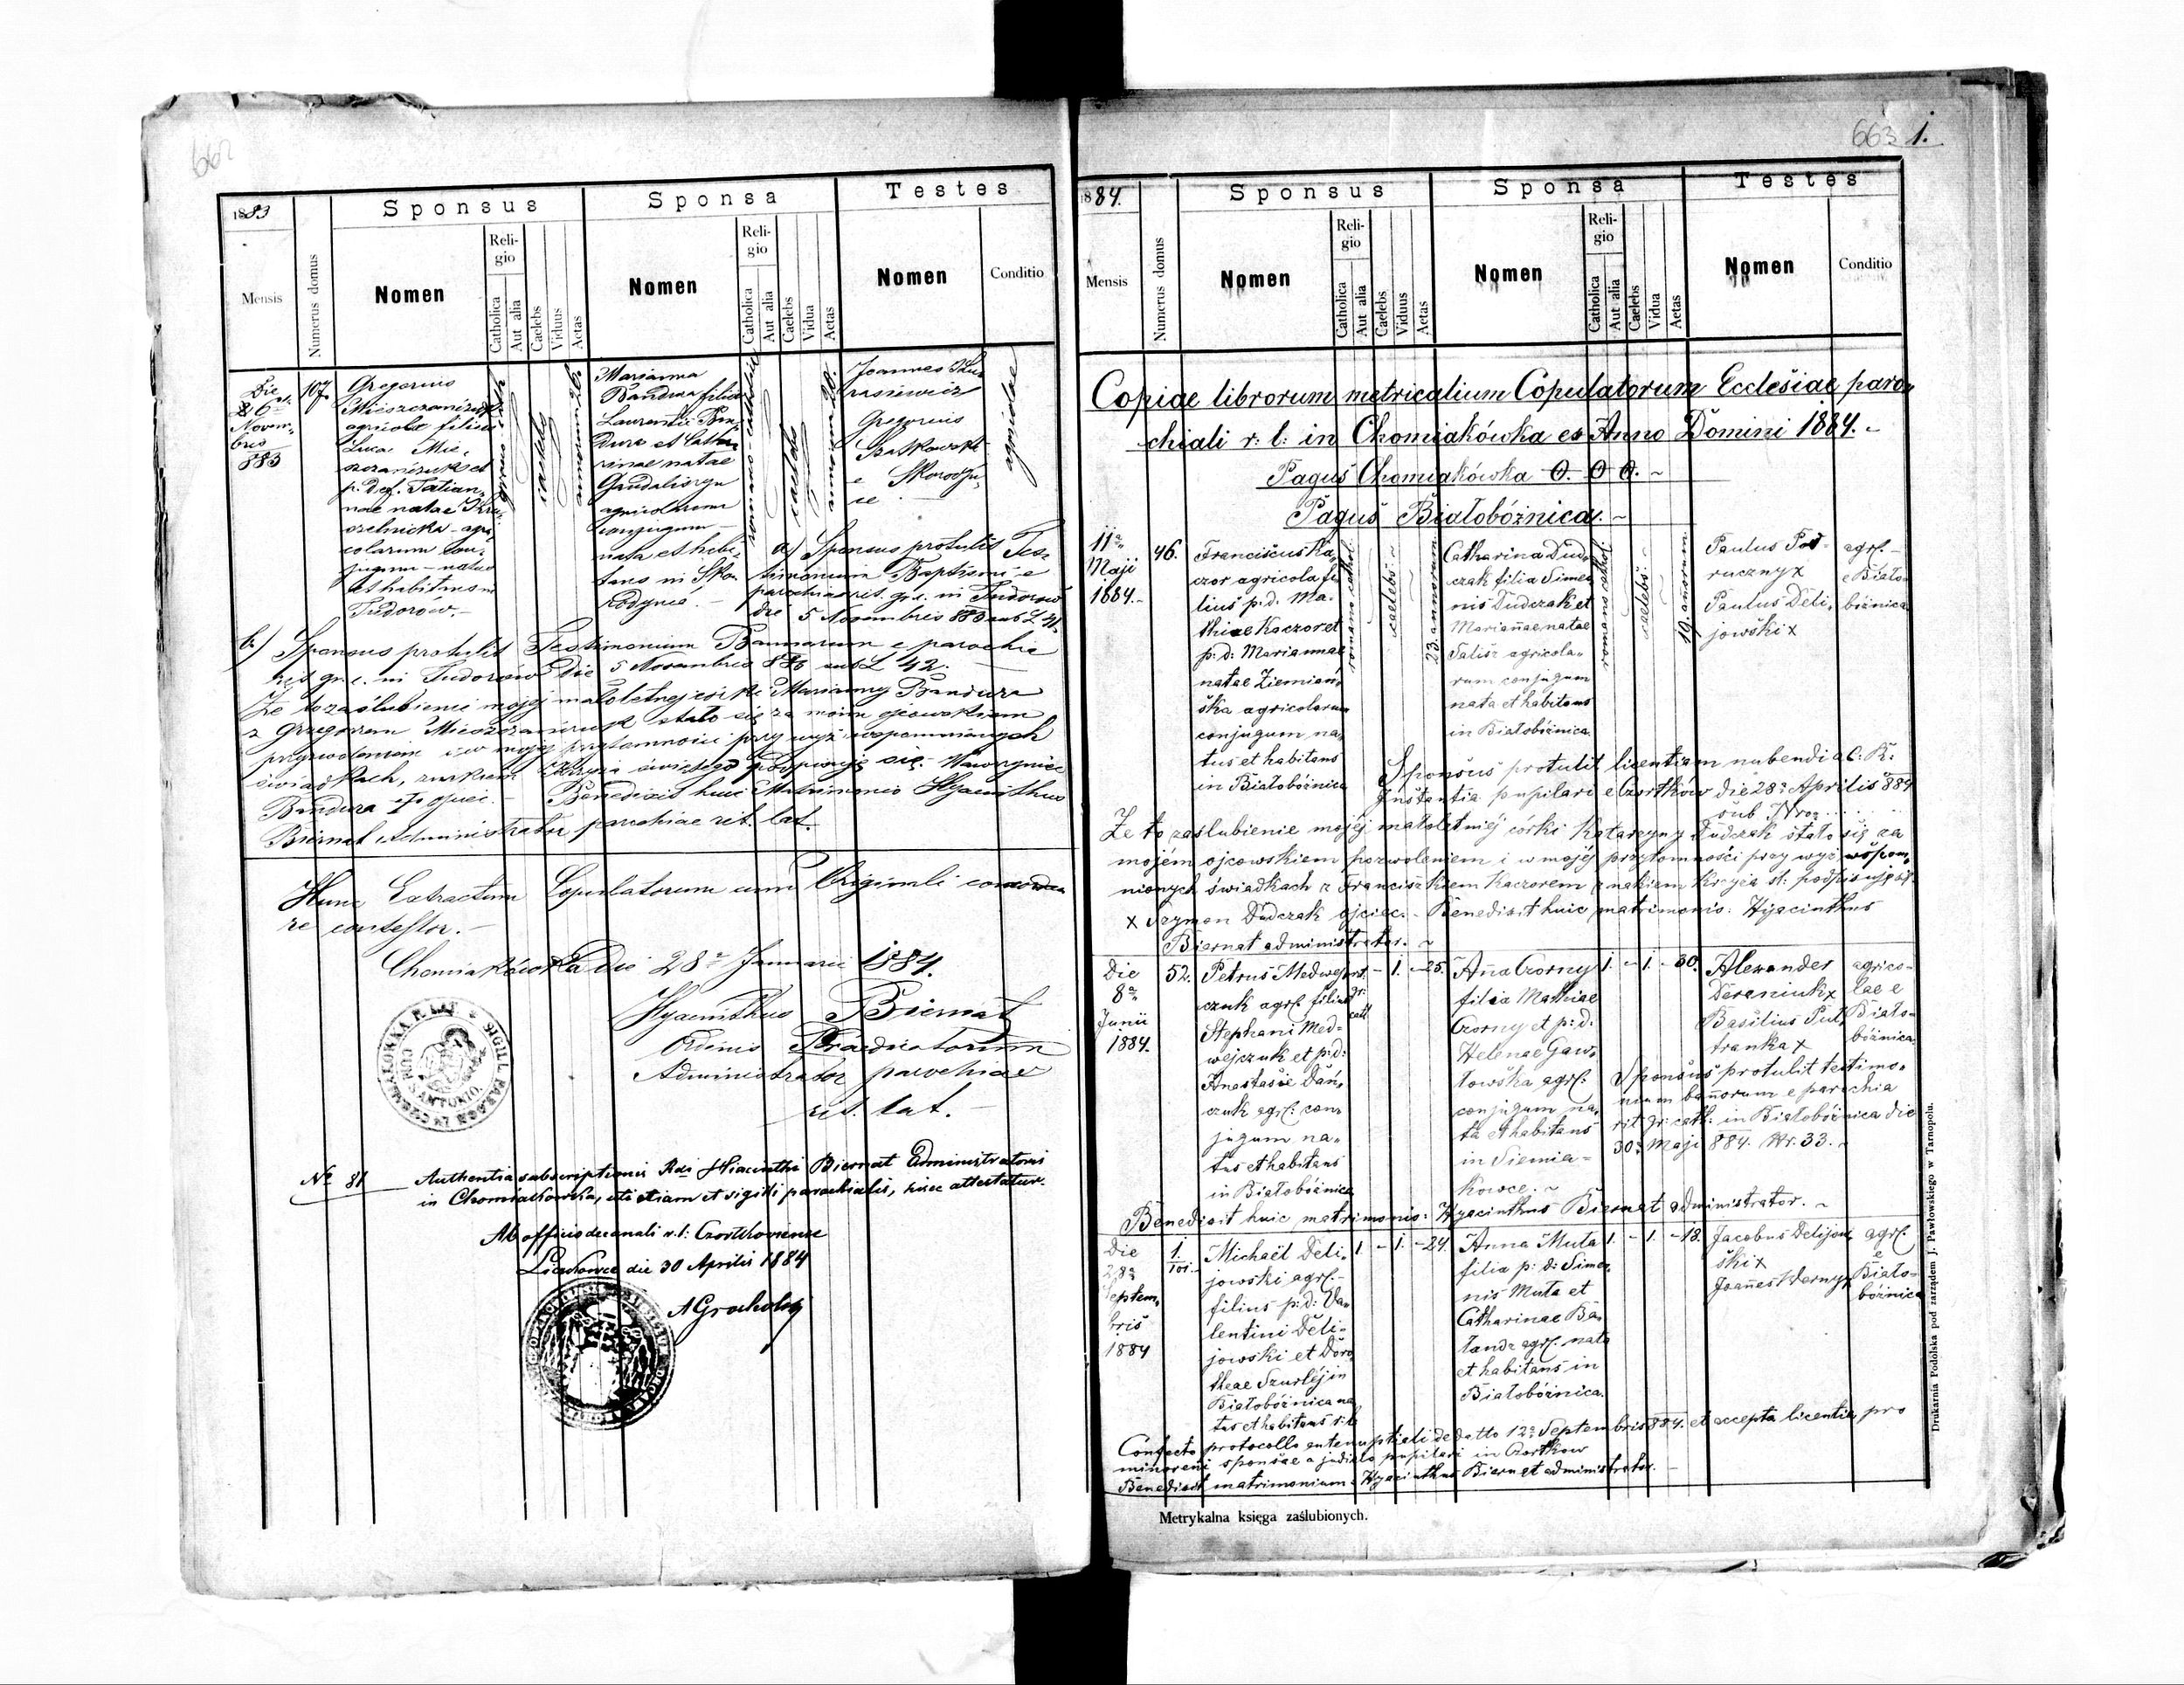 662
1883
Sponsus
Sponsa
Testes
Mensis
Numerus domus
Nomen
Religio
Catholica
Aut alia
Caelebs
Viduus
Aetas
Nomen
Religio
Catholica
Aut alia
Caelebs
Vidua
Aetas
Nomen
Conditio
Die
26
Novem-
bris
883
107
Gregorius
Mieszczańczuk
agricola filius
Lucae Mie-
szczańczuk et
p. def. Tatian-
nae natae
agri-
colarum con-
jugum - natus
et habitans in
Tudorów. -
annorum 26.
Marianna
Bandura filia
Laurentii Ban-
dura et Catha-
rinae natae
agricolarum
conjugum -
nata et habi-
tans in Sko-
rodyńce. -
romano catholica
caelebs
annorum 20.
Joannes
Gregorius
e Skorodyń-
ce
agricolae
a) Sponsus protulit Tes-
timonium Baptismi e
parochia rit. gr. c. in Tudorów
die 5 Novembris 883 sub L 41.
b) Sponsus protulit Testimonium Bannorum e parochia
rit. gr. c. in Tudorów die 5 Novembris 883 sub L 42.
Że to zaślubienie mojej małoletniej córki Marianny Bandura
z Grzegorzem Mieszczańczuk stało się za moim ojcowskiem
przyzwoleniem i w mojej przytomności przy wyż wspomnionych
świadkach, znakiem Krzyża świętego podpisuję się. Wawrzyniec
Bandura ojciec. - Benedixit huic Matrimonio Hyacinthus
Biernat Administrator parochiae rit. lat.
Hunc Extractum Copulatorum cum Originali concorda-
re contestor. -
Chomiakówka die 28a Januarii 1884.
Hyacinthus Biernat
Ordinis Praedicatorum
Administrator parochiae
rit. lat. -
No 81 Authentia subscriptionis Rdi Hiacinthi Biernat Administratoris
in Chomiakówka, uti etiam et sigilli parochialis, hisce attestatur.
Ab officio decanali r. l: Czortkoviense
die 30 Aprilis 1884
A Grocholski
663 1.
1884.
Sponsus
Sponsa
Testes
Mensis
Numerus domus
Nomen
Religio
Catholica
Aut alia
Caelebs
Viduus
Aetas
Nomen
Religio
Catholica
Aut alia
Caelebs
Vidua
Aetas
Nomen
Conditio
Copiae librorum metricalium Copulatorum Ecclesiae paro-
chiali r: l: in Chomiakówka ex Anno Domini 1884. -
Pagus Chomiakówka 0. 0 0. ~
Pagus Białobóżnica. ~
11a
Maji
1884. -
46.
Franciscus Ka-
czor agricola fi-
lius p: d. Ma-
thiae Kaczor et
p: d: Mariannae
natae Ziemiań-
ska agricolarum
conjugum na-
tus et habitans
in Białobóżnica
romano cathol.
caelebs. ~
23. annorum
Catharina Dud-
czak filia Simeo-
nis Dudczak et
Mariannae natae
Salisz agricola-
rum conjugum
nata et habitans
in Białobóżnica.
caelebs. ~
19. annorum
Paulus Pod-
rucznyx
Paulus Deli-
jowski x
agrl. -
e Biało-
bóżnica
Sponsus protulit licentiam nubendi a C. K.
Instantia pupilari e Czortków die 28a Aprilis 884
sub Nro ....
Że to zaślubienie mojéj małoletniéj córki Katarzyny Dudczak stało się za
mojém ojcowskiem pozwoleniem i w mojéj przytomności przy wyż wspom-
nionych świadkach z Franciszkiem Kaczorem znakiem krzyża st. podpisuję się.
x Szymon Dudczak ojciec. - Benedixit huic matrimonio: Hyacinthus
Biernat administrator. ~
Die
8a
Junii
1884.
52.
Petrus Medwej-
czuk agrl. filius
Stephani Med-
wejczuk et p: d:
Anastasie Dań-
czuk agrl: con-
jugum na-
tus et habitans
in Białobóżnica
rit.
gr:
cath
- 1. - 25.
Anna Czorny
filia Mathiae
Czorny et p: d:
Helenae Gaw-
łowska agrl:
conjugum na-
ta et habitans
in Siemia-
kowce. ~
1. - 1. - 30.
Alexander
Dereniuk x
Basilius Put-
tranka x
agrico-
lae e
Biało-
bóżnica
Sponsus protulit testimo-
nium bannorum e parochia
rit gr: cath: in Białobóżnica die
30a Maji 884. Nr. 33. ~
Benedixit huic matrimonio: Hyacinthus Biernat administrator. ~
Die
28a
Septem-
bris
1884
1.
101.
Michaël Deli-
jowski agrl. -
filius p: d: Va-
lentini Deli-
jowski et Doro-
theae Szurléj in
Białobóżnica na
tus et habitans
1. - 1. - 24.
Anna Muta
filia p: d: Simeo-
nis Muta et
Catharinae Ba-
landa agrl. nata
et habitans in
Białobóżnica.
1. - 1. - 18.
Jacobus Delijow-
ski x
Joannes
agrl.
e
Biało-
bóżnica
Confecto protocollo antenuptiali de datto 12a Septembris 884. et accepta licentia pro
minoreni sponsae a judicio pupilari in Czortkow
Benedixit matrimonium: Hyacinthus Biernat administrator. -
Metrykalna księga zaślubionych.
Drukarnia Podolska pod zarządem J. Pawłowskiego w Tarnopolu.